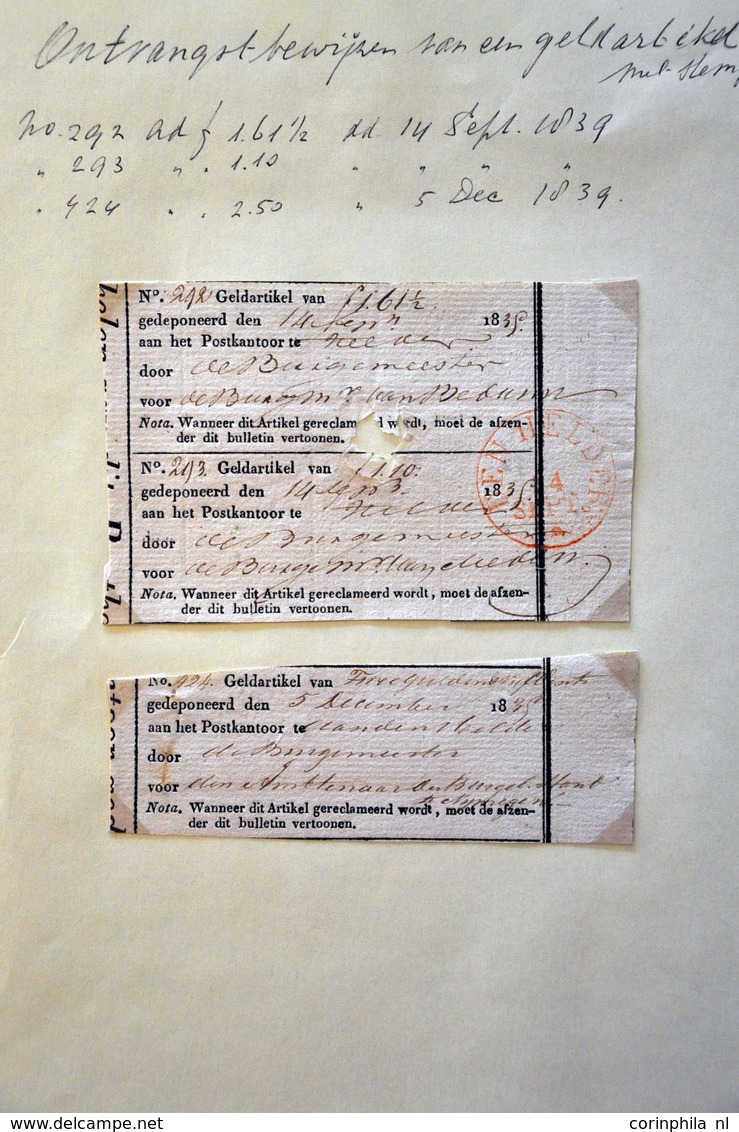 Ontvangstbewijzen van een geldartikel
met stemp
No. 292 ad f 1.61½ dd 14 Sept. 1839
" 293 " " 1.10 " " " "
" 424 " " 2.50 " 5 Dec 1839.
No. 292 Geldartikel van f 1.61½.
gedeponeerd den 14 Sept 18
aan het Postkantoor te Helder
door de Burgemeester
voor de Burgmr van Bedum
Nota. Wanneer dit Artikel gereclameerd wordt, moet de afzen-
der dit bulletin vertoonen.
DEN HELDER
4
SEPT
No. 293. Geldartikel van f 1.10.
gedeponeerd den 14 Sept 18
aan het Postkantoor te Helder
door de Burgemeester
voor de Burgemr van
Nota. Wanneer dit Artikel gereclameerd wordt, moet de afzen-
der dit bulletin vertoonen.
No. 424. Geldartikel van
gedeponeerd den 5 December 18
aan het Postkantoor te
door de Burgemeester
voor den Ambtenaar
Nota. Wanneer dit Artikel gereclameerd wordt, moet de afzen-
der dit bulletin vertoonen.
www.delcampe.net
corinphila nl